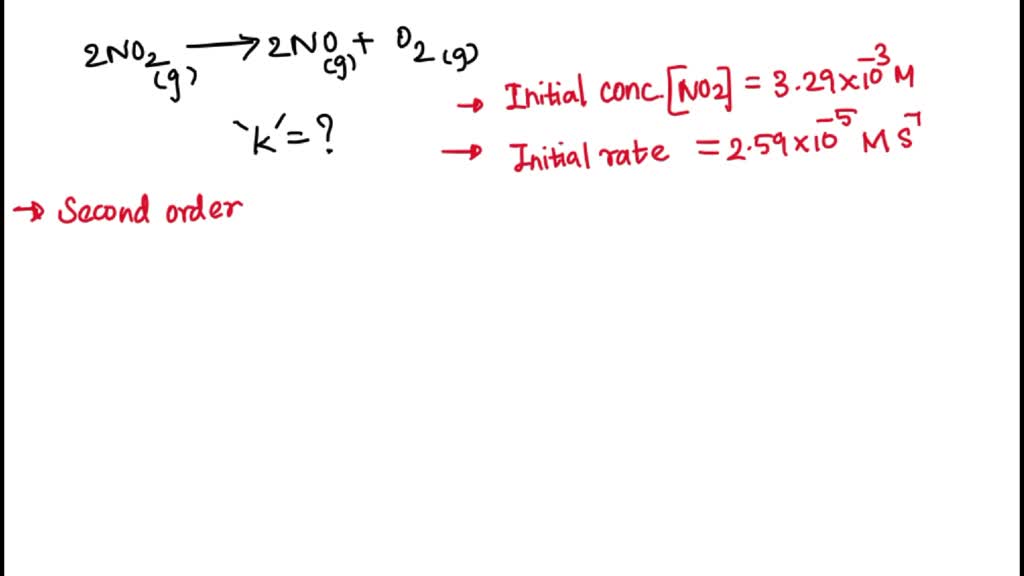 2NO₂(g) ⟶ 2NO(g) + O₂(g)
→ Initial conc. [NO₂] = 3.29×10⁻³ M
‵k′ = ?
→ Initial rate = 2.59×10⁻⁵ M S⁻¹
→ Second order